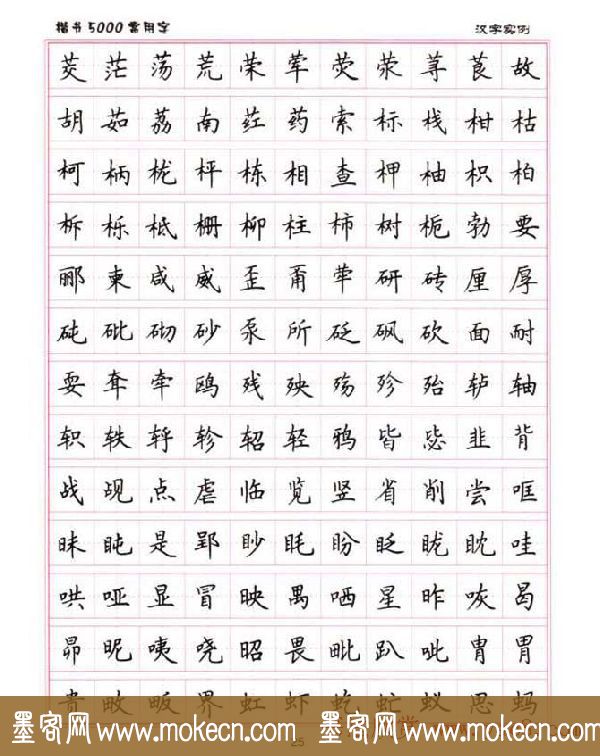 楷书5000常用字 汉字实例
茭茫荡荒荣荤荧荥荨茛故
胡茹荔南荭药索标栈柑枯
柯柄栊枰栋相查柙柚枳柏
柝栎柢栅柳柱柿树栀勃要
郦柬咸威歪甭荜研砖厘厚
砘砒砌砂泵所砭砜砍面耐
耍耷牵鸥残殃殇珍殆轳轴
轵轶轷轸轺轻鸦皆毖韭背
战觇点虐临览竖省削尝哐
昧盹是郢眇眊盼眨昽眈哇
哄哑显冒映禺哂星昨咴曷
昴昵咦哓昭畏毗趴呲胄胃
贵畋畈界虹虾虼虻蚁思蚂
墨客网 www.mokecn.com 墨客网 www.mokecn.com
25